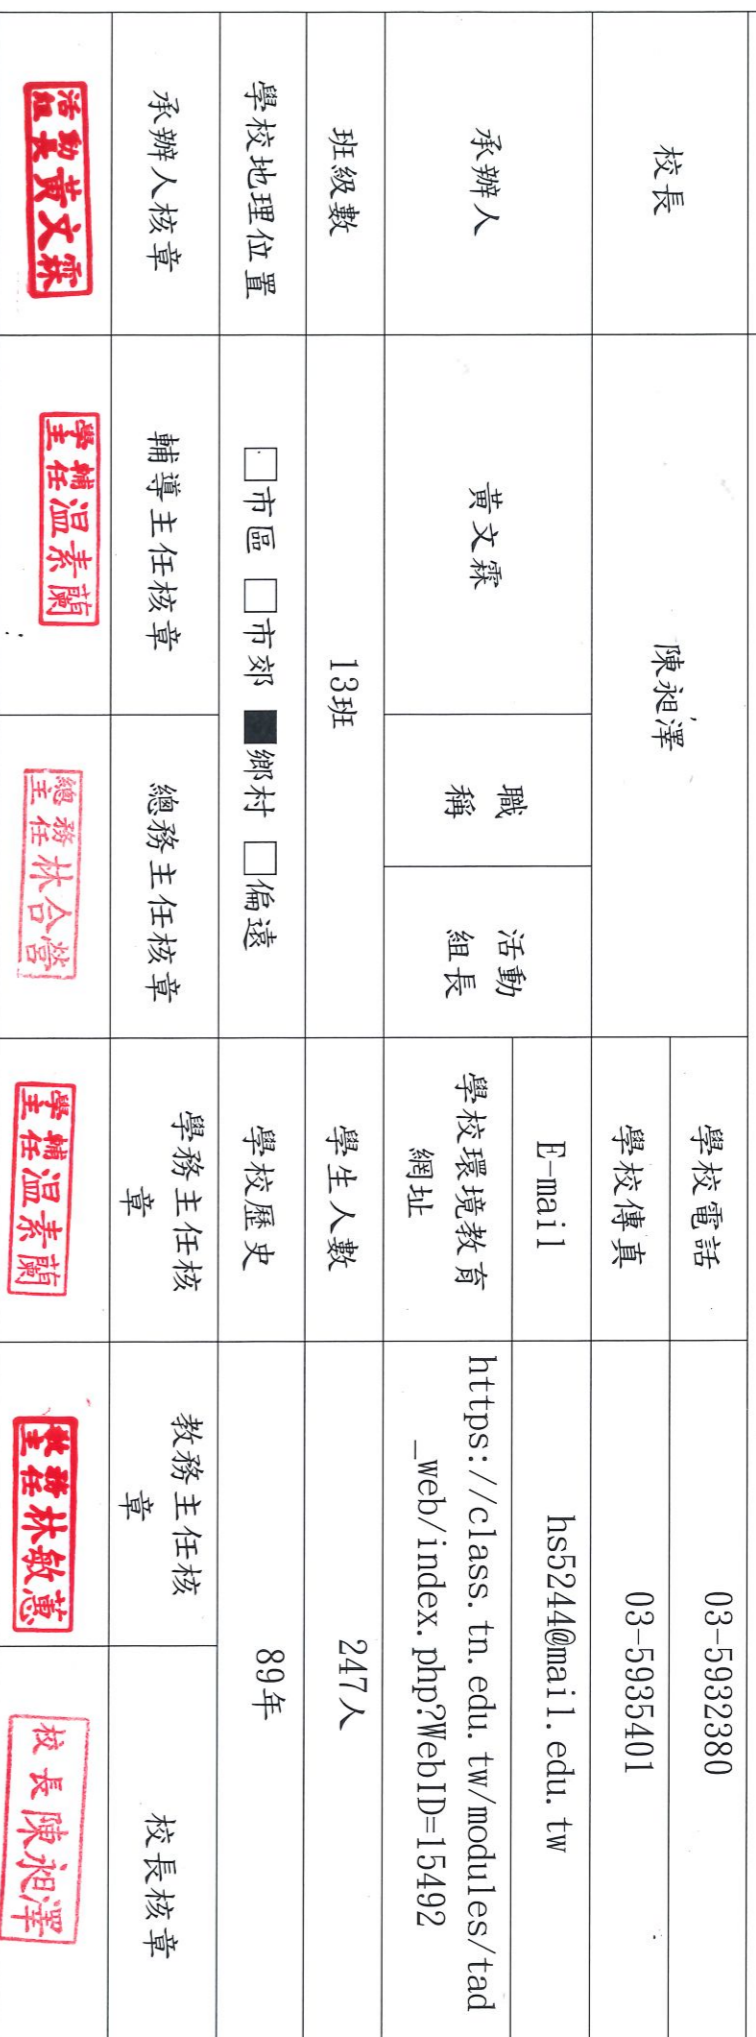 校長
陳昶澤
學校電話
03-5932380
學校傳真
03-5935401
承辦人
黃文霖
職
稱
活動
組長
E-mail
hs5244@mail.edu.tw
學校環境教育
網址
https://class.tn.edu.tw/modules/tad
_web/index.php?WebID=15492
班級數
13班
學生人數
247人
學校地理位置
□市區 □市郊 ■鄉村 □偏遠
學校歷史
89年
承辦人核章
輔導主任核章
總務主任核章
學務主任核
章
教務主任核
章
校長核章
活動組長黃文霖
學輔主任溫素蘭
總務主任林合營
學輔主任溫素蘭
教務主任林敏蕙
校長陳昶澤